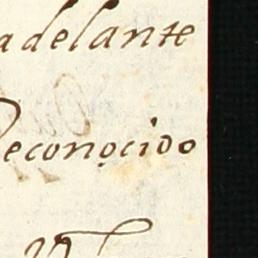 adelante
econocido